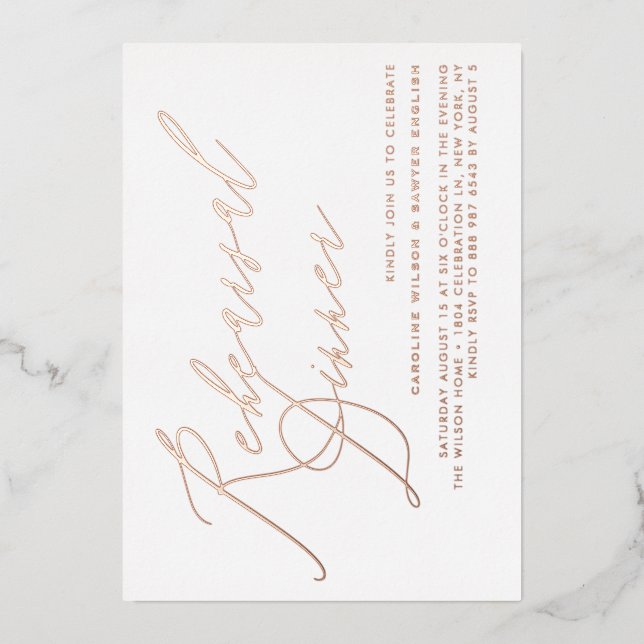 Rehearsal
Dinner
KINDLY JOIN US TO CELEBRATE
CAROLINE WILSON & SAWYER ENGLISH
SATURDAY AUGUST 15 AT SIX O'CLOCK IN THE EVENING
THE WILSON HOME • 1804 CELEBRATION LN, NEW YORK, NY
KINDLY RSVP TO 888 987 6543 BY AUGUST 5